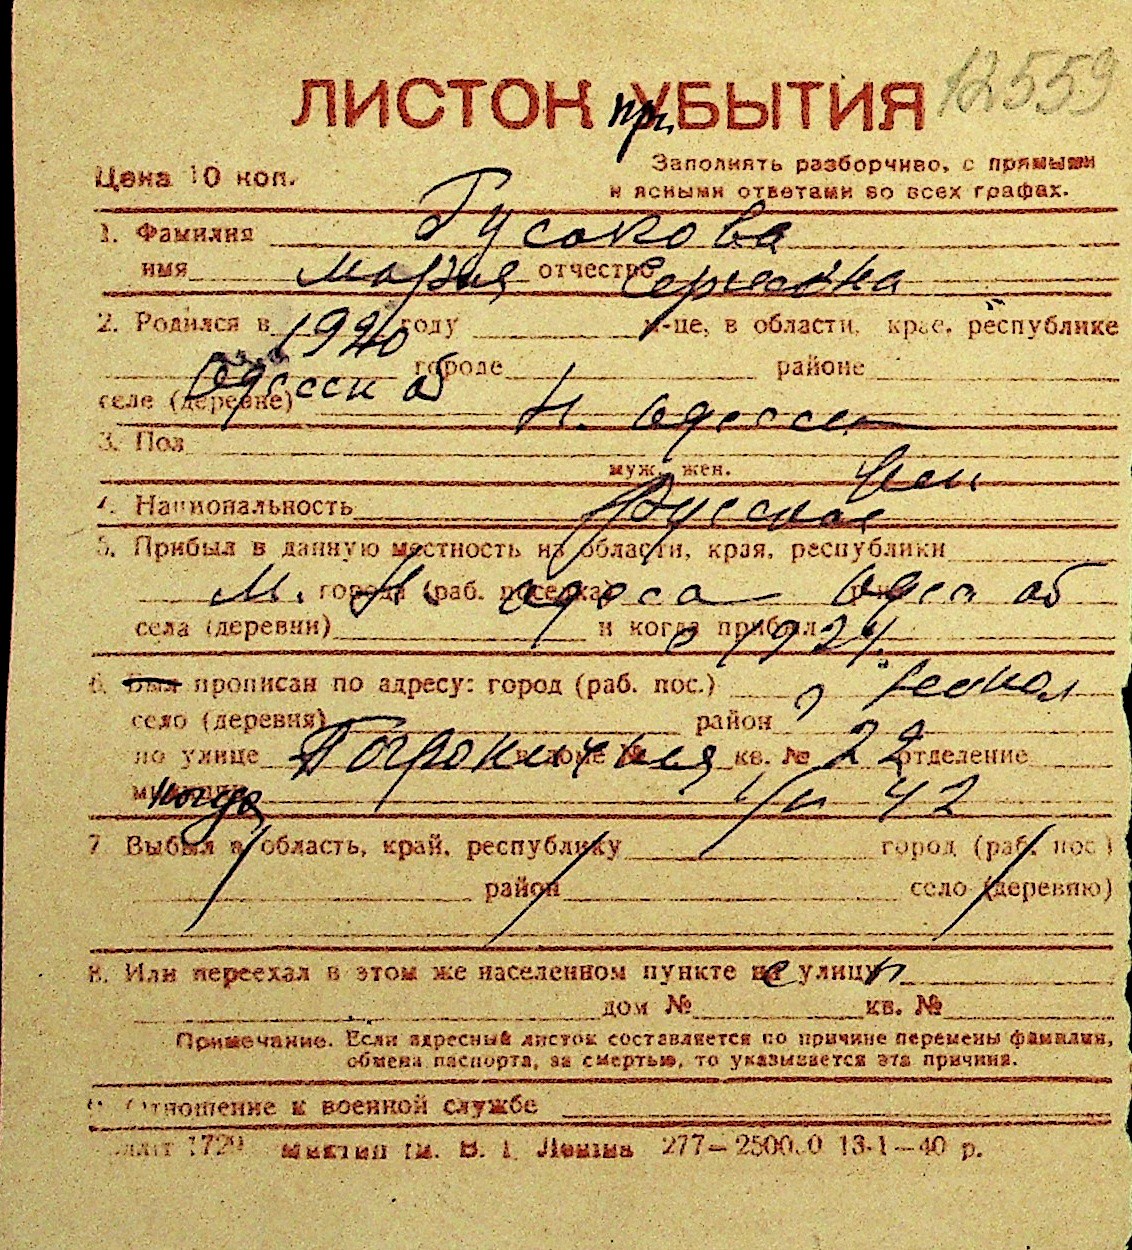 12559
ЛИСТОК при УБЫТИЯ
Цена 10 коп.
Заполнять разборчиво, с прямыми
и ясными ответами во всех графах.
1. Фамилия Гусакова
имя Мария отчество Сергеевна
2. Родился в 1920 году м-це, в области, крае, республике
Одесск об городе районе
селе (деревне) Н. Одесса
3. Пол
муж., жен. жен
4. Национальность Русская
5. Прибыл в данную местность из области, края, республики
М. города Н. (раб. поселка) Одеса Одес об
села (деревни) и когда прибыл с 1924.
6. Был прописан по адресу: город (раб. пос.)
село (деревня) район
по улице в доме № кв. № 22 отделение
милиции когда 1/II 42
7 Выбыл в область, край, республику город (раб. пос.)
район село (деревню)
8. Или переехал в этом же населенном пункте на улицу
дом № кв. №
Примечание. Если адресный листок составляется по причине перемены фамилии,
обмена паспорта, за смертью, то указывается эта причина.
9. Отношение к военной службе
1729 им. В. І. Леніна 277—25000 13-1—40 р.